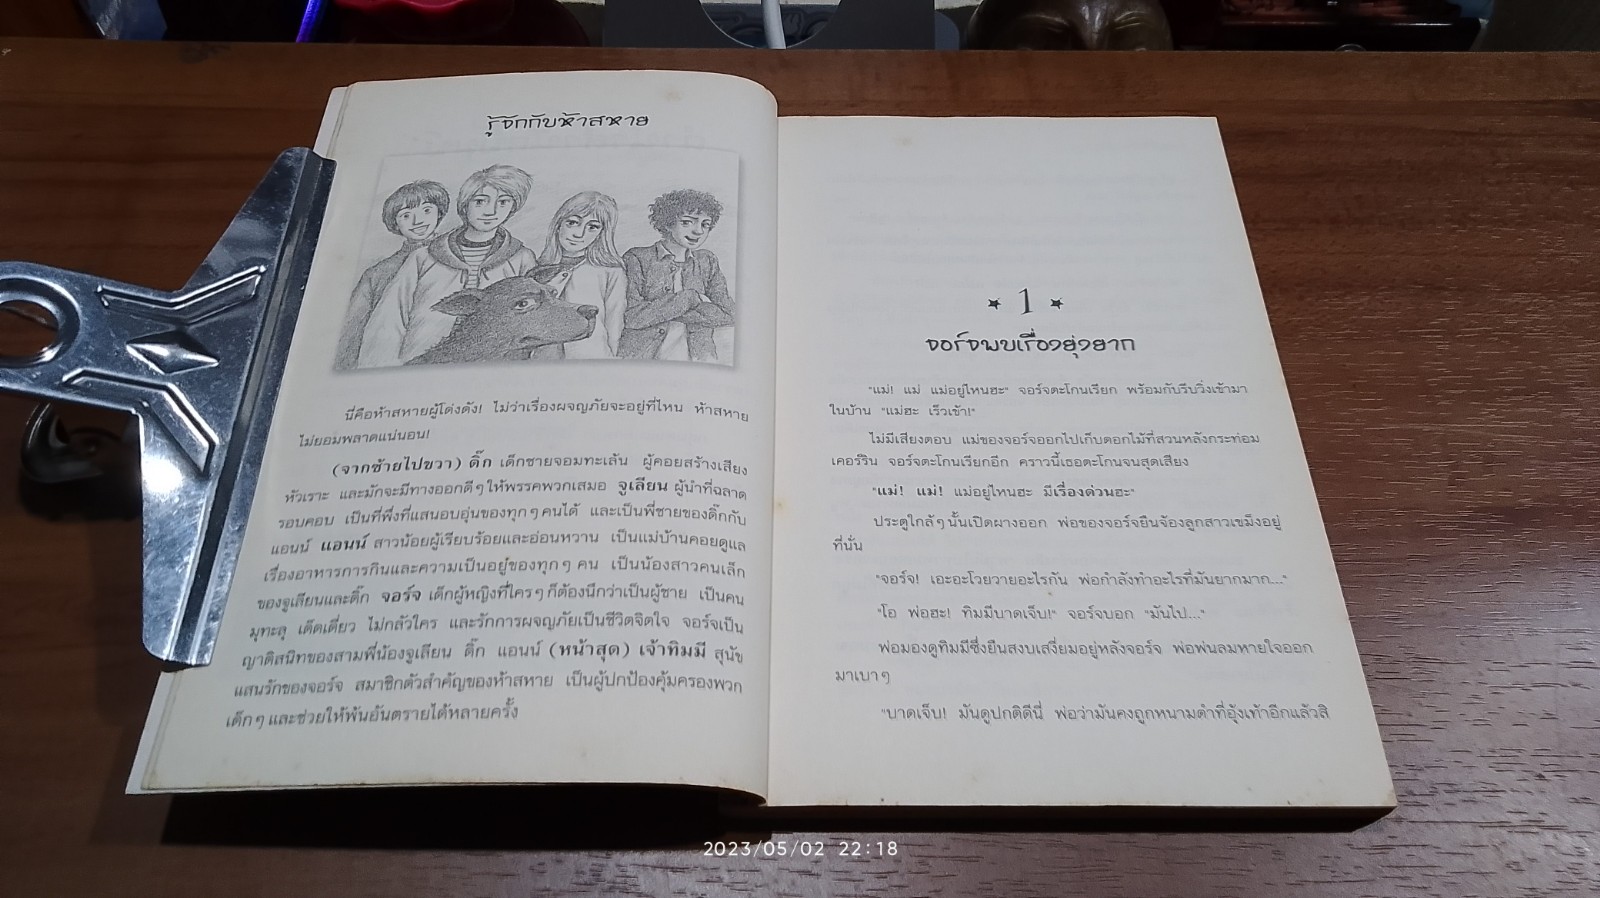 รู้จักกับห้าสหาย
นี่คือห้าสหายผู้โด่งดัง! ไม่ว่าเรื่องผจญภัยจะอยู่ที่ไหน ห้าสหาย
ไม่ยอมพลาดแน่นอน!
(จากซ้ายไปขวา) ดิ๊ก เด็กชายจอมทะเล้น ผู้คอยสร้างเสียง
หัวเราะ และมักจะมีทางออกดีๆ ให้พรรคพวกเสมอ จูเลียน ผู้นำที่ฉลาด
รอบคอบ เป็นที่พึ่งที่แสนอบอุ่นของทุกๆ คนได้ และเป็นพี่ชายของดิ๊กกับ
แอนน์ แอนน์ สาวน้อยผู้เรียบร้อยและอ่อนหวาน เป็นแม่บ้านคอยดูแล
เรื่องอาหารการกินและความเป็นอยู่ของทุกๆ คน เป็นน้องสาวคนเล็ก
ของจูเลียนและดิ๊ก จอร์จ เด็กผู้หญิงที่ใครๆ ก็ต้องนึกว่าเป็นผู้ชาย เป็นคน
มุทะลุ เด็ดเดี่ยว ไม่กลัวใคร และรักการผจญภัยเป็นชีวิตจิตใจ จอร์จเป็น
ญาติสนิทของสามพี่น้องจูเลียน ดิ๊ก แอนน์ (หน้าสุด) เจ้าทิมมี สุนัข
แสนรักของจอร์จ สมาชิกตัวสำคัญของห้าสหาย เป็นผู้ปกป้องคุ้มครองพวก
เด็กๆ และช่วยให้พ้นอันตรายได้หลายครั้ง
★ 1 ★
จอร์จพบเรื่องยุ่งยาก
"แม่! แม่ แม่อยู่ไหนฮะ" จอร์จตะโกนเรียก พร้อมกับรีบวิ่งเข้ามา
ในบ้าน "แม่ฮะ เร็วเข้า!"
ไม่มีเสียงตอบ แม่ของจอร์จออกไปเก็บดอกไม้ที่สวนหลังกระท่อม
เคอร์ริน จอร์จตะโกนเรียกอีก คราวนี้เธอตะโกนจนสุดเสียง
"แม่! แม่! แม่อยู่ไหนฮะ มีเรื่องด่วนฮะ"
ประตูใกล้ๆ นั้นเปิดผางออก พ่อของจอร์จยืนจ้องลูกสาวเขม็งอยู่
ที่นั่น
"จอร์จ! เอะอะโวยวายอะไรกัน พ่อกำลังทำอะไรที่มันยากมาก..."
"โอ พ่อฮะ! ทิมมีบาดเจ็บ!" จอร์จบอก "มันไป..."
พ่อมองดูทิมมีซึ่งยืนสงบเสงี่ยมอยู่หลังจอร์จ พ่อพ่นลมหายใจออก
มาเบาๆ
"บาดเจ็บ! มันดูปกติดีนี่ พ่อว่ามันคงถูกหนามตำที่อุ้งเท้าอีกแล้วสิ
2023/05/02 22:18